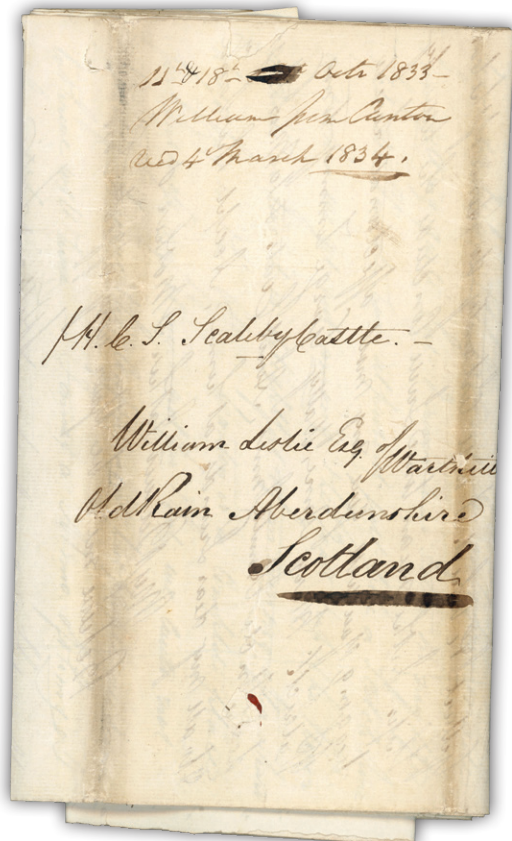 11th & 18th Octr 1833 -
William from Canton
recd 4 March 1834.
p H. C. S. Scaleby Castle. -
William Leslie Esq. of Warthill
Old Rain Aberdeenshire
Scotland